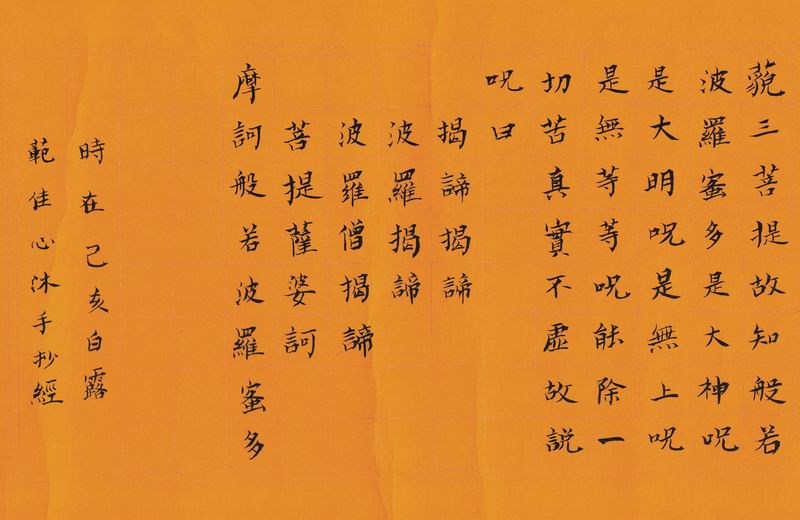 藐三菩提故知般若
波羅蜜多是大神呪
是大明呪是無上呪
是無等等呪能除一
切苦真實不虛故説
呪曰
揭諦揭諦
波羅揭諦
波羅僧揭諦
菩提薩婆訶
摩訶般若波羅蜜多
時在己亥白露
範佳心沐手抄經